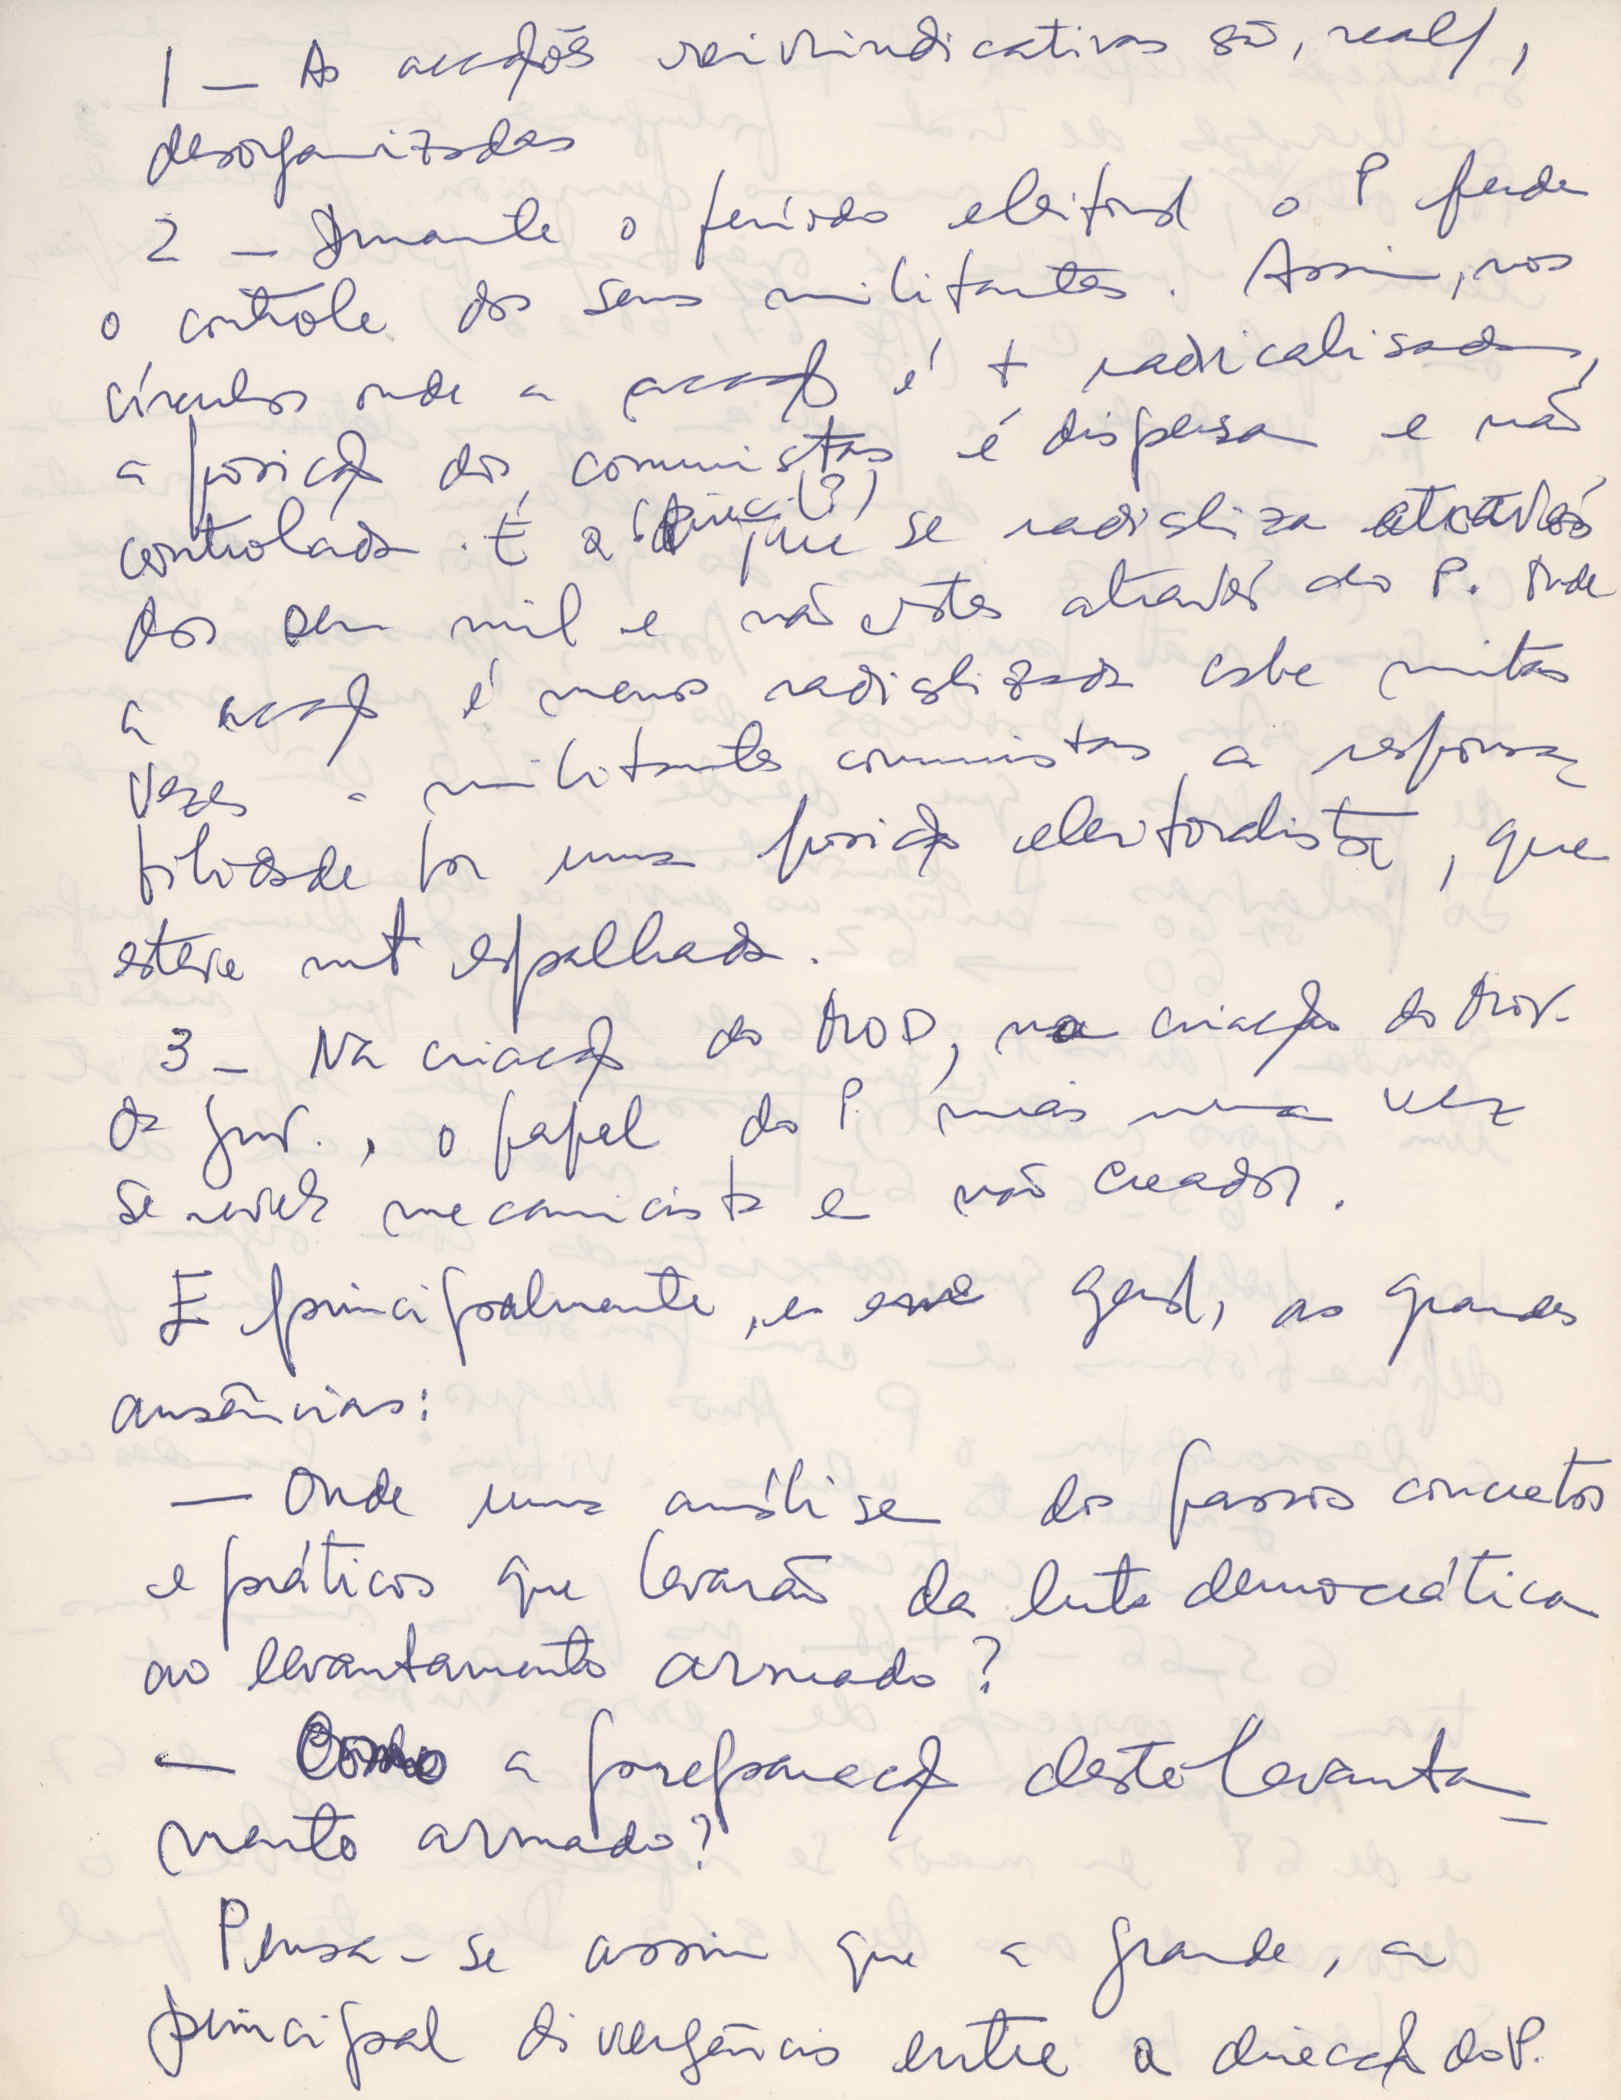 1 — As acções reivindicativas são, real/,
desorganizadas
2 — Durante o período eleitoral o P perde
o controle dos seus militantes. Assim, nos
círculos onde a acção é + radicalisada,
a posição dos comunistas é dispersa e não
controlada. É a (?) que se radicaliza através
dos cem mil e não estes através do P. Onde
a acção é menos radicalizada cabe muitas
vezes a militantes comunistas a responsa-
bilidade por uma posição eleitoralista, que
esteve mt espalhada.
3 — Na criação do MOD, na criação do Mov.
da Juv., o papel do P. mais uma vez
se revela mecanicista e não creador.
E principalmente, em geral, as grandes
ausências:
— Onde uma análise dos passos concretos
e práticos que levarão da luta democrática
ao levantamento armado?
— Como a preparação deste levanta-
mento armado?
Pensa-se assim que a grande, a
principal divergência entre a direcção do P.